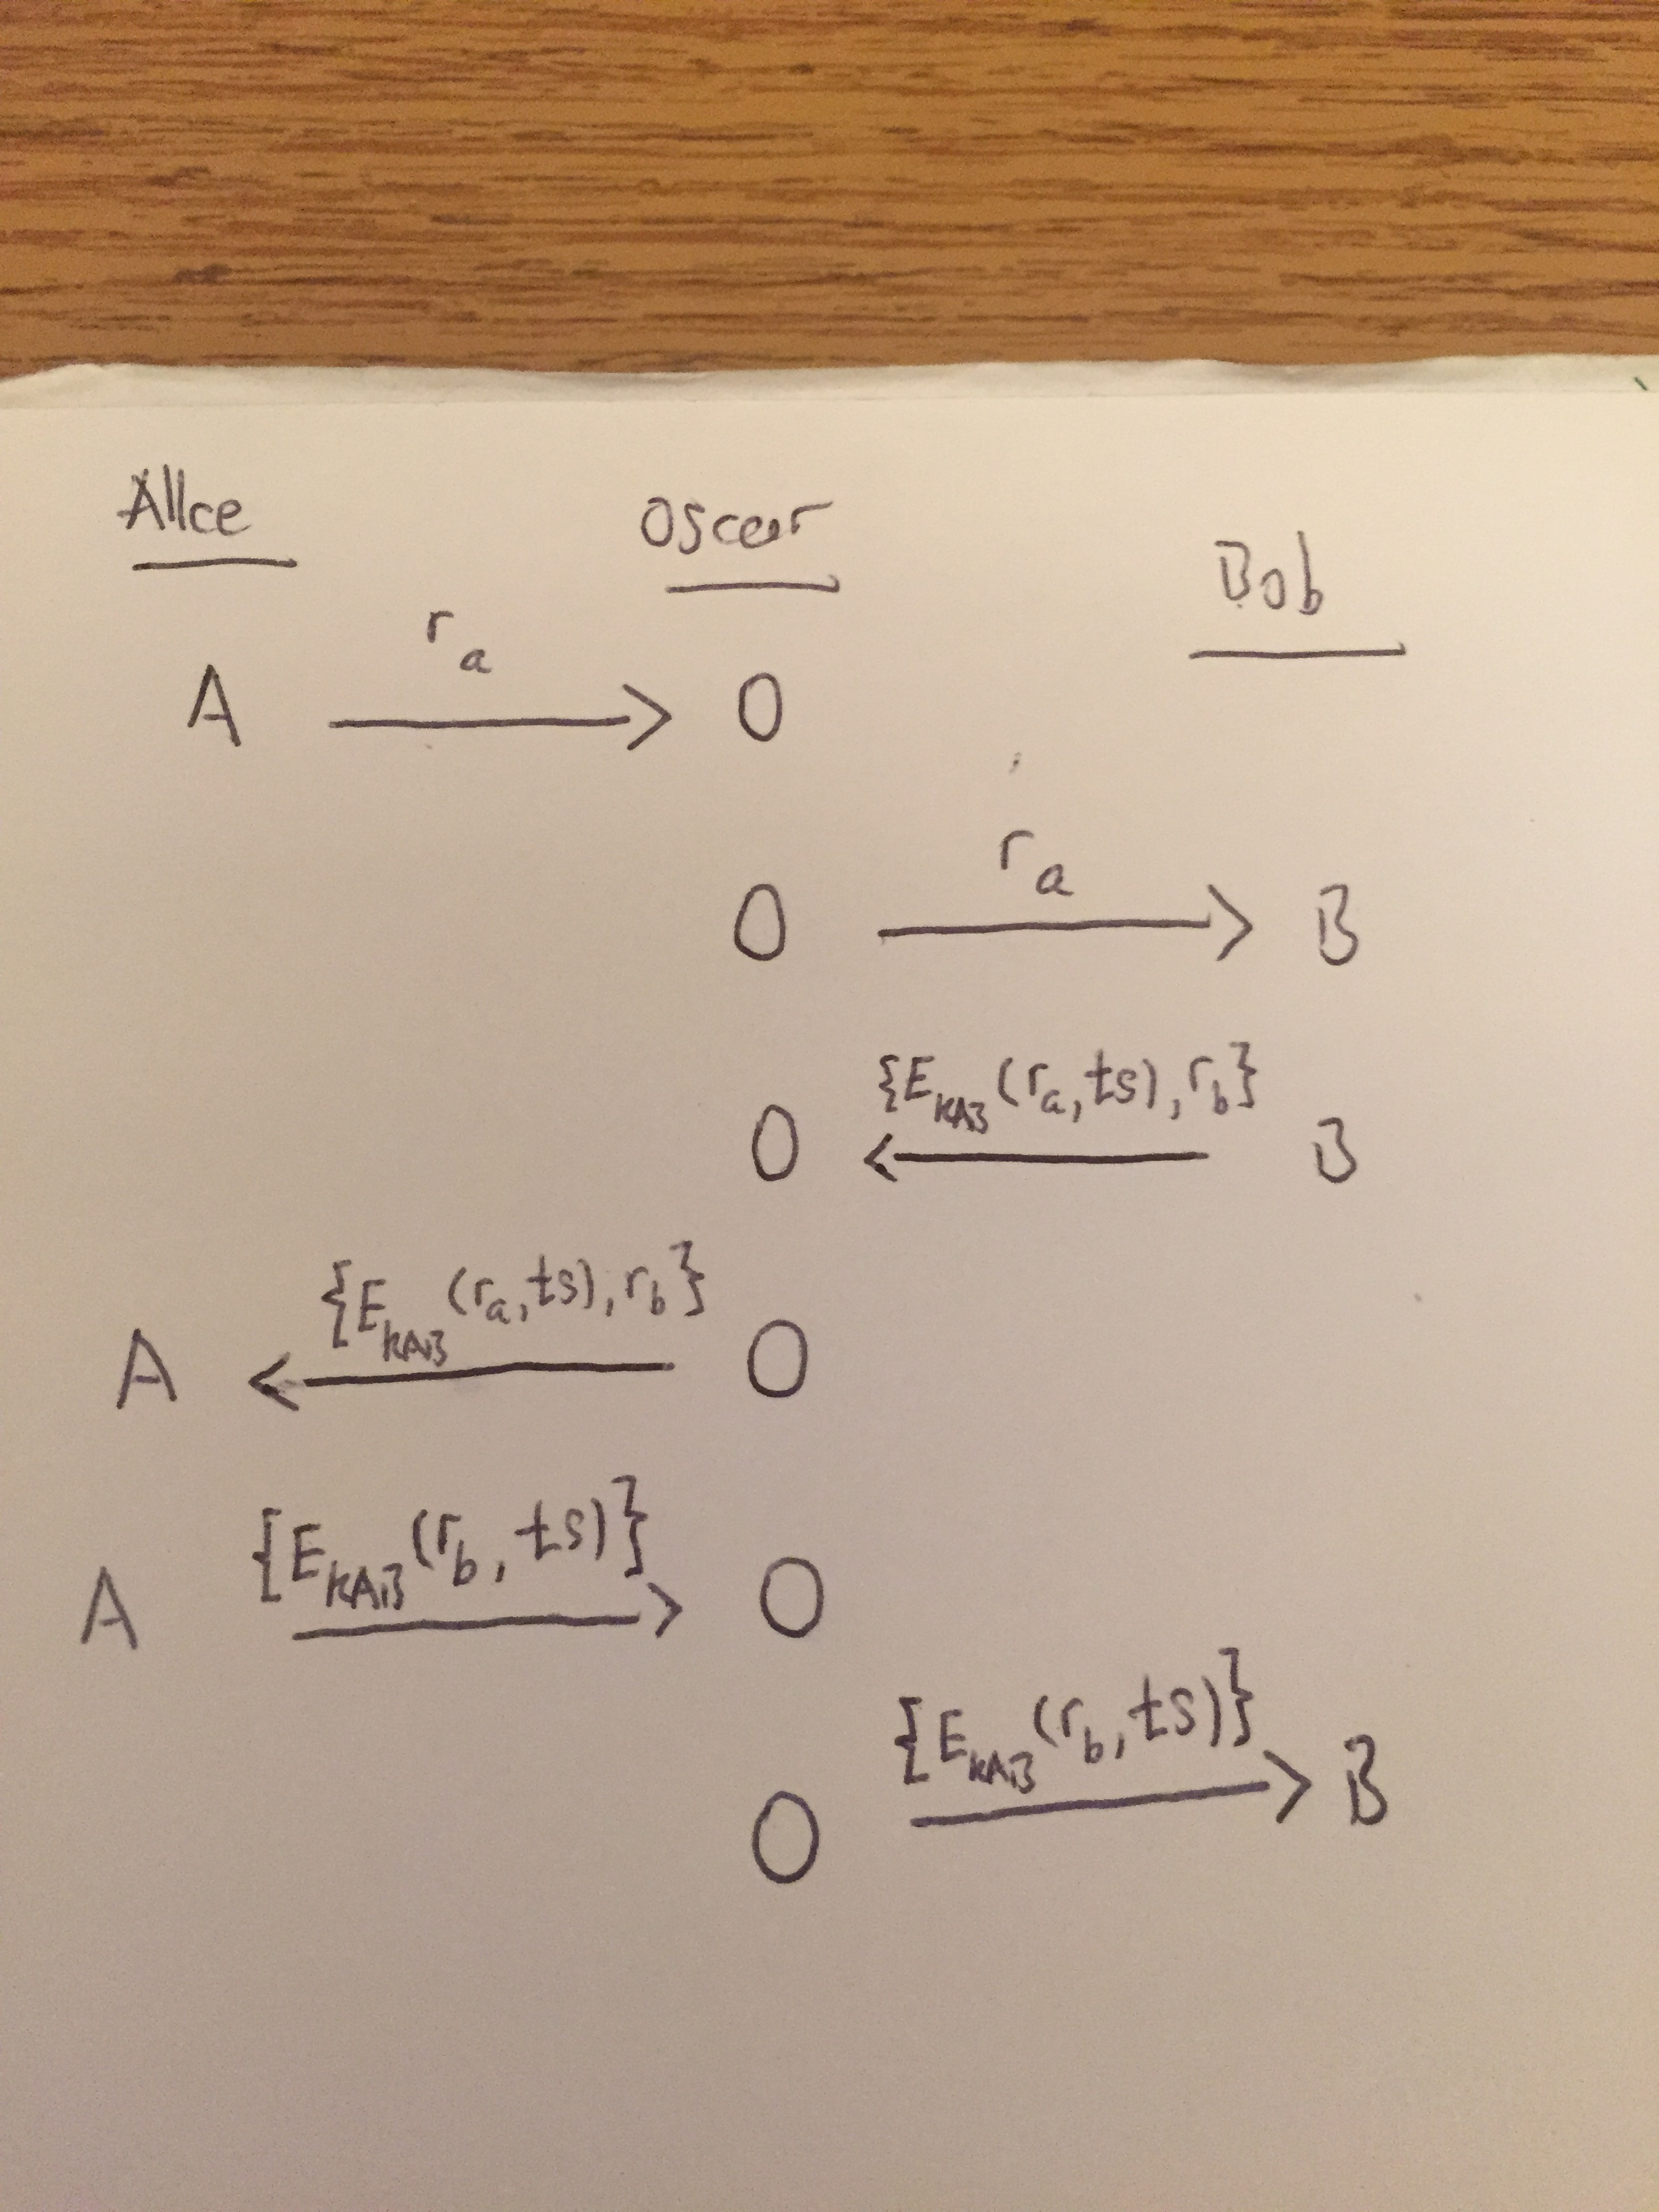 Alice Oscar Bob
r_a
A → O
r_a
O → B
{E_KAB(r_a, ts), r_b}
O ← B
{E_KAB(r_a, ts), r_b}
A ← O
{E_KAB(r_b, ts)}
A → O
{E_KAB(r_b, ts)}
O → B